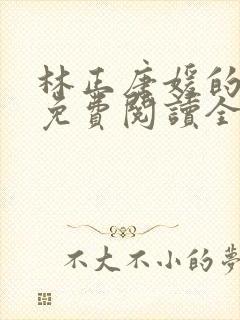 林正唐媛的
免費閱讀全
不大不小的夢